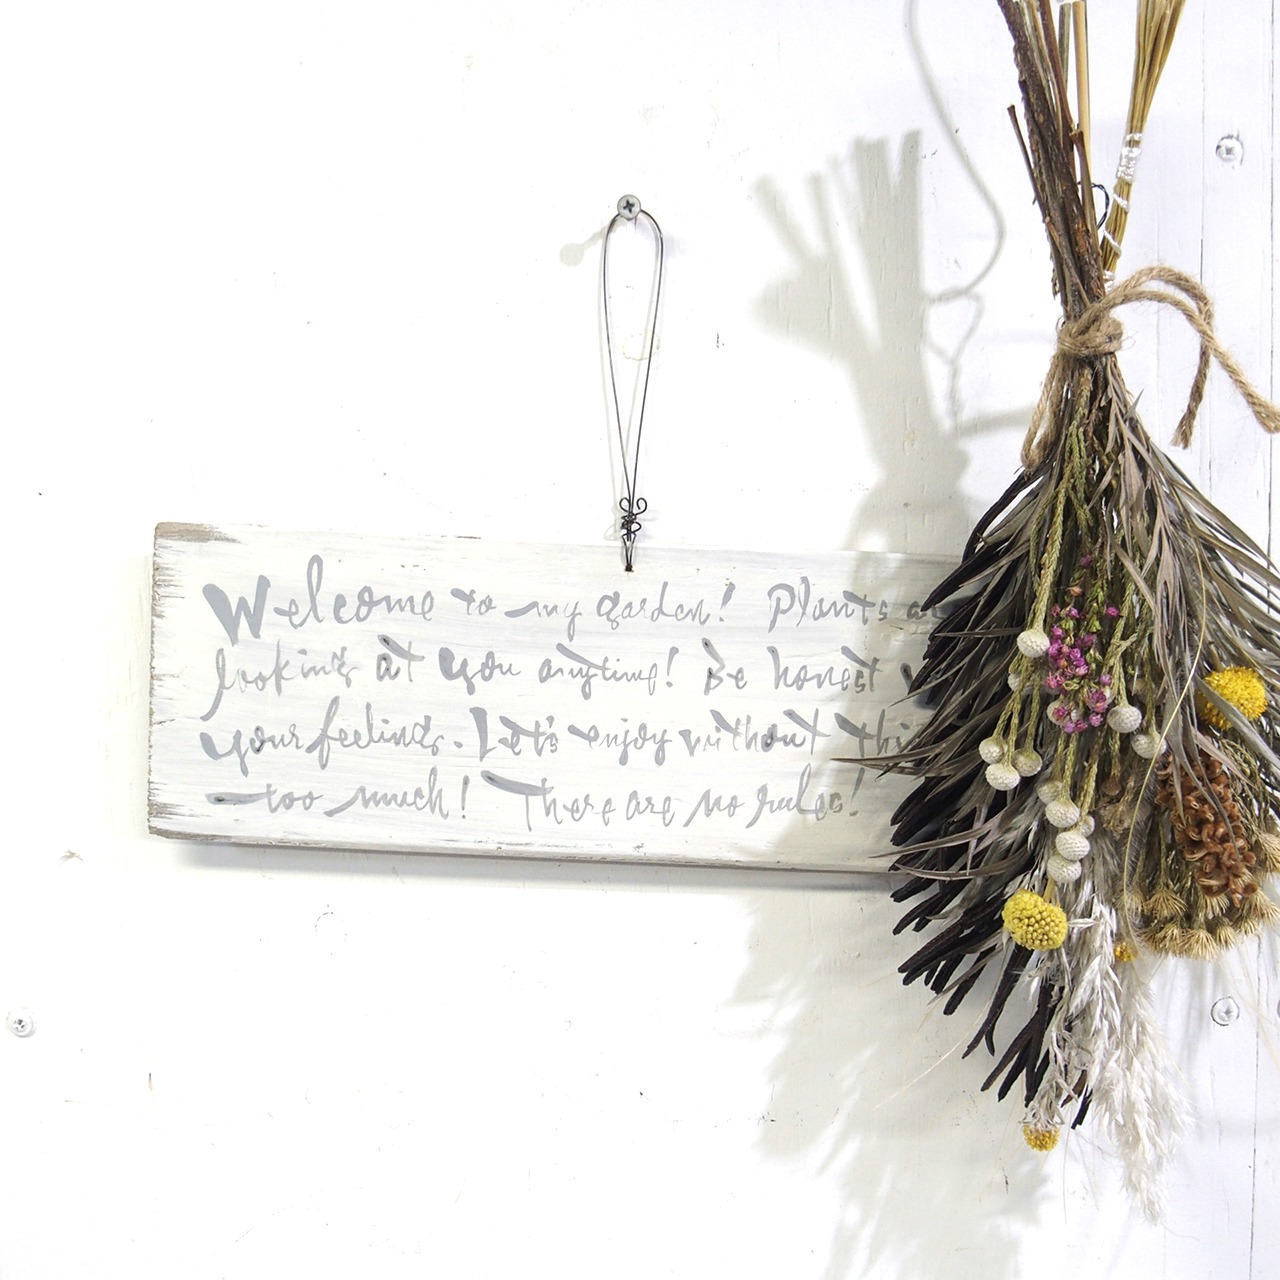 Welcome to my garden! Plants
looking at you anytime! Be honest
your feelings. Let's enjoy without
too much! There are no rules!